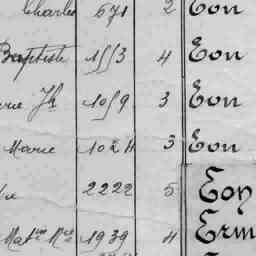 Charles 571 2 Eon
Baptiste 1553 4 Eon
Jh 1059 3 Eon
Marie 1024 3 Eon
2222 5 Eon
Mat 1939 4 Erm